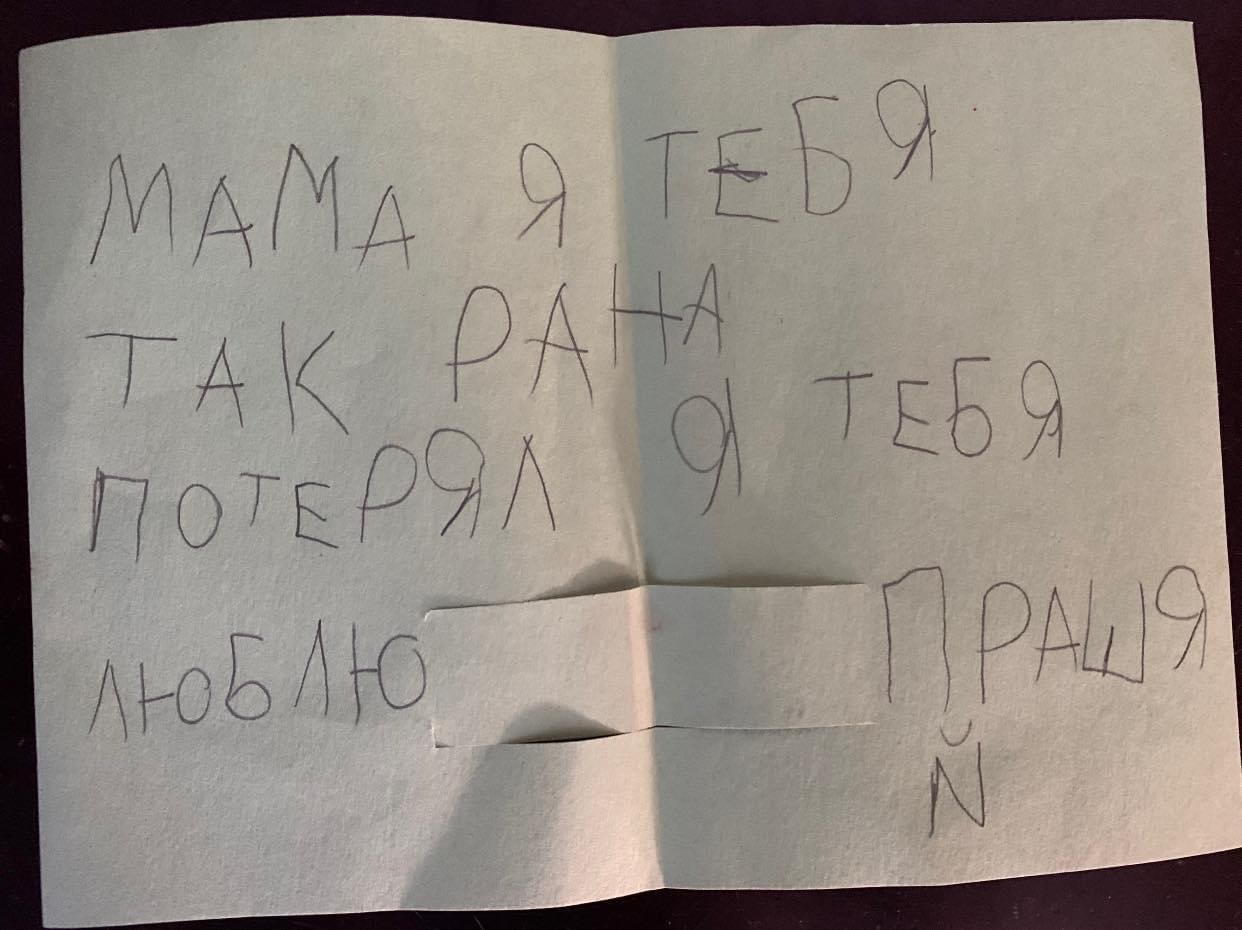 МАМА Я ТЕБЯ
ТАК РАНА
ПОТЕРЯЛ Я ТЕБЯ
ЛЮБЛЮ ПРАШЯ
Й